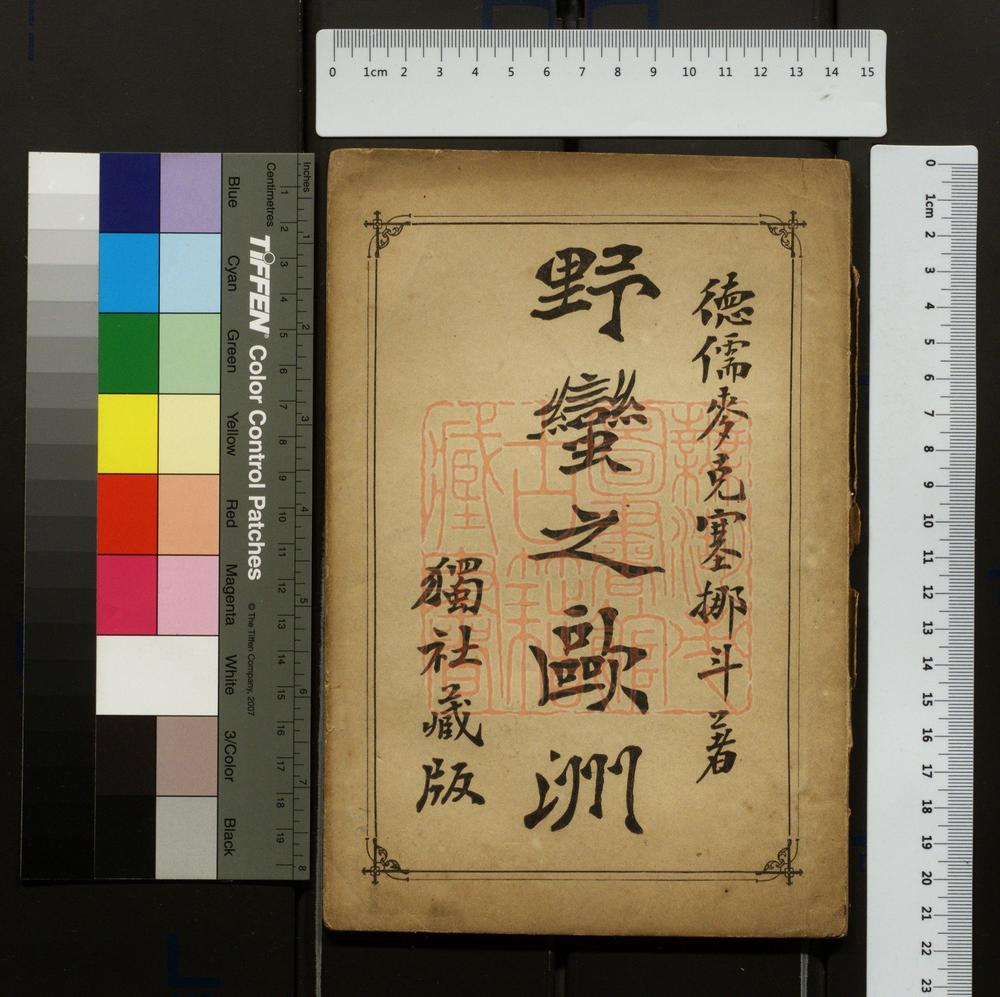 德儒麥克塞挪斗著
野蠻之歐洲
獨社藏版
0 1cm 2 3 4 5 6 7 8 9 10 11 12 13 14 15
0 1cm 2 3 4 5 6 7 8 9 10 11 12 13 14 15 16 17 18 19 20 21 22 23
Inches
1 2 3 4 5 6 7 8
Centimetres
1 2 3 4 5 6 7 8 9 10 11 12 13 14 15 16 17 18 19
TIFFEN® Color Control Patches
© The Tiffen Company, 2007
Blue
Cyan
Green
Yellow
Red
Magenta
White
3/Color
Black